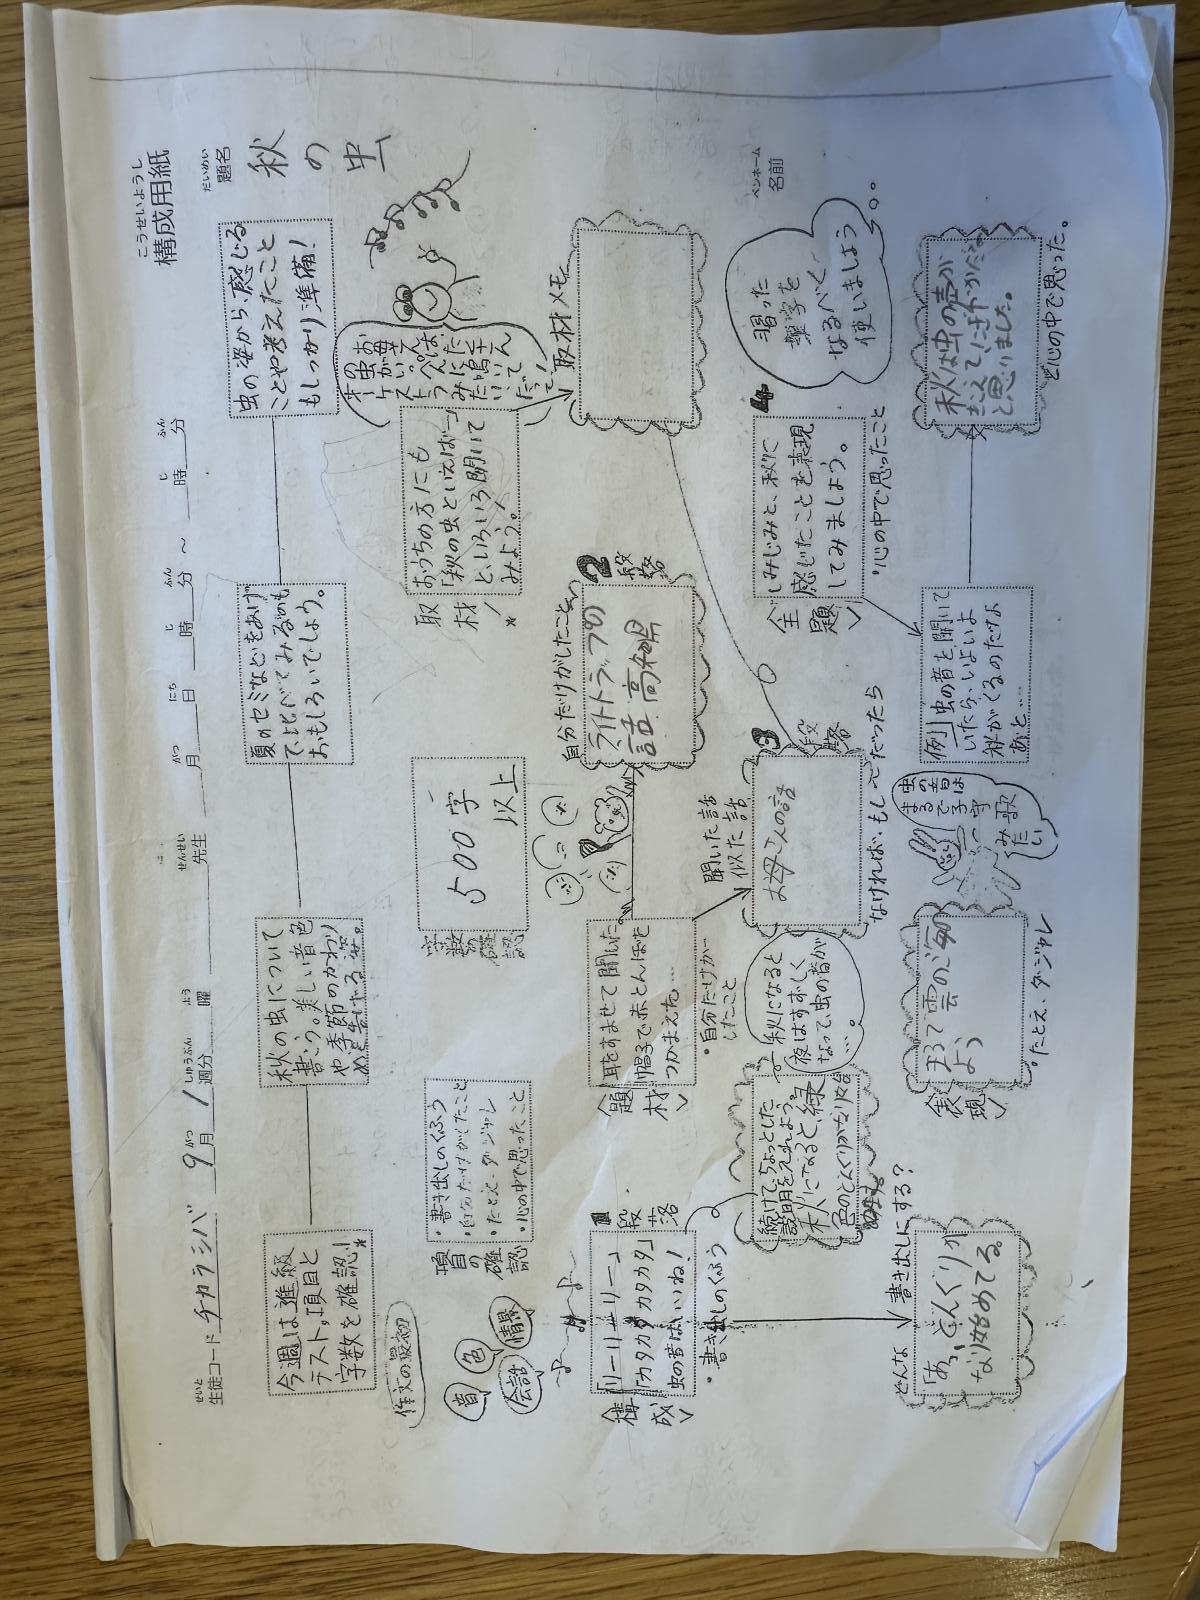 構成用紙
こうせいようし
題名
だいめい
秋の虫
名前
ペンネーム
生徒コード チカラシバ 9月 1週分 曜 先生 月 日 時 分 ～ 時 分
今週は進級
テスト。項目と
字数を確認!
秋の虫について
書こう。美しい音色
や季節のかわり
夏のセミなどをあげ
て比べてみるのも
おもしろいでしょう。
虫の姿から、感じる
ことや考えたこと
もしっかり準備!
作文の最初
音
色
会話
情景
項目の確認
・書き出しのくふう
・自分だけがしたこと
・たとえ・ダジャレ
・心の中で思ったこと
字数の確認
500字
以上
取材!
おうちの方にも
「秋の虫といえば…」
と、いろいろ聞いて
みよう。
お母さん
の虫がいっぺんに
オーケストラみたいに
鳴いて
取材メモ
<構成>
1段落
「リーリーリー」
「カタカタカタカタ」
虫の音はいいね!
・書き出しのくふう
<題材>
耳をすませて聞いた
帽子で赤とんぼを
つかまえた…
・自分だけが
したこと
自分だけがしたこと
2段落
ライトトラップの
話 高知県
続けて、ちょっとした
説明を入れよう。
秋になると、緑
色のどんぐりがなり始
秋になると
夜はすずしく
なって、虫の音が
…。
聞いた話
似た話
3段落
お母さんの話
なければ、もし〜だったら
<主題>
しみじみと、秋に
感じたことを表現
してみましょう。
・心の中で思ったこと
4
習った
漢字を
なるべく
使いましょう
どんな書き出しにする?
「あっ、どんぐりが
なり始めてる。
<表現>
まるで雲のごう
よう
・たとえ・ダジャレ
虫の音は
まるで子守
歌
みたい
例 虫の音を聞いて
いたら、いよいよ
秋がくるのだなあ
と…
秋は虫の声が
と思いました。
と心の中で思った。